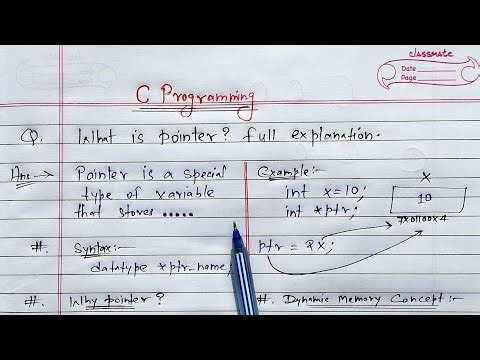 classmate
Date
Page
C Programming
Q. What is pointer? full explanation.
Ans:→ Pointer is a special
type of variable
that stores .....
#. Syntax:-
datatype *ptr_name;
#. Why pointer?
Example:-
int x=10;
int *ptr;
ptr = &x;
X
10
7x01100x4
#. Dynamic Memory Concept:-